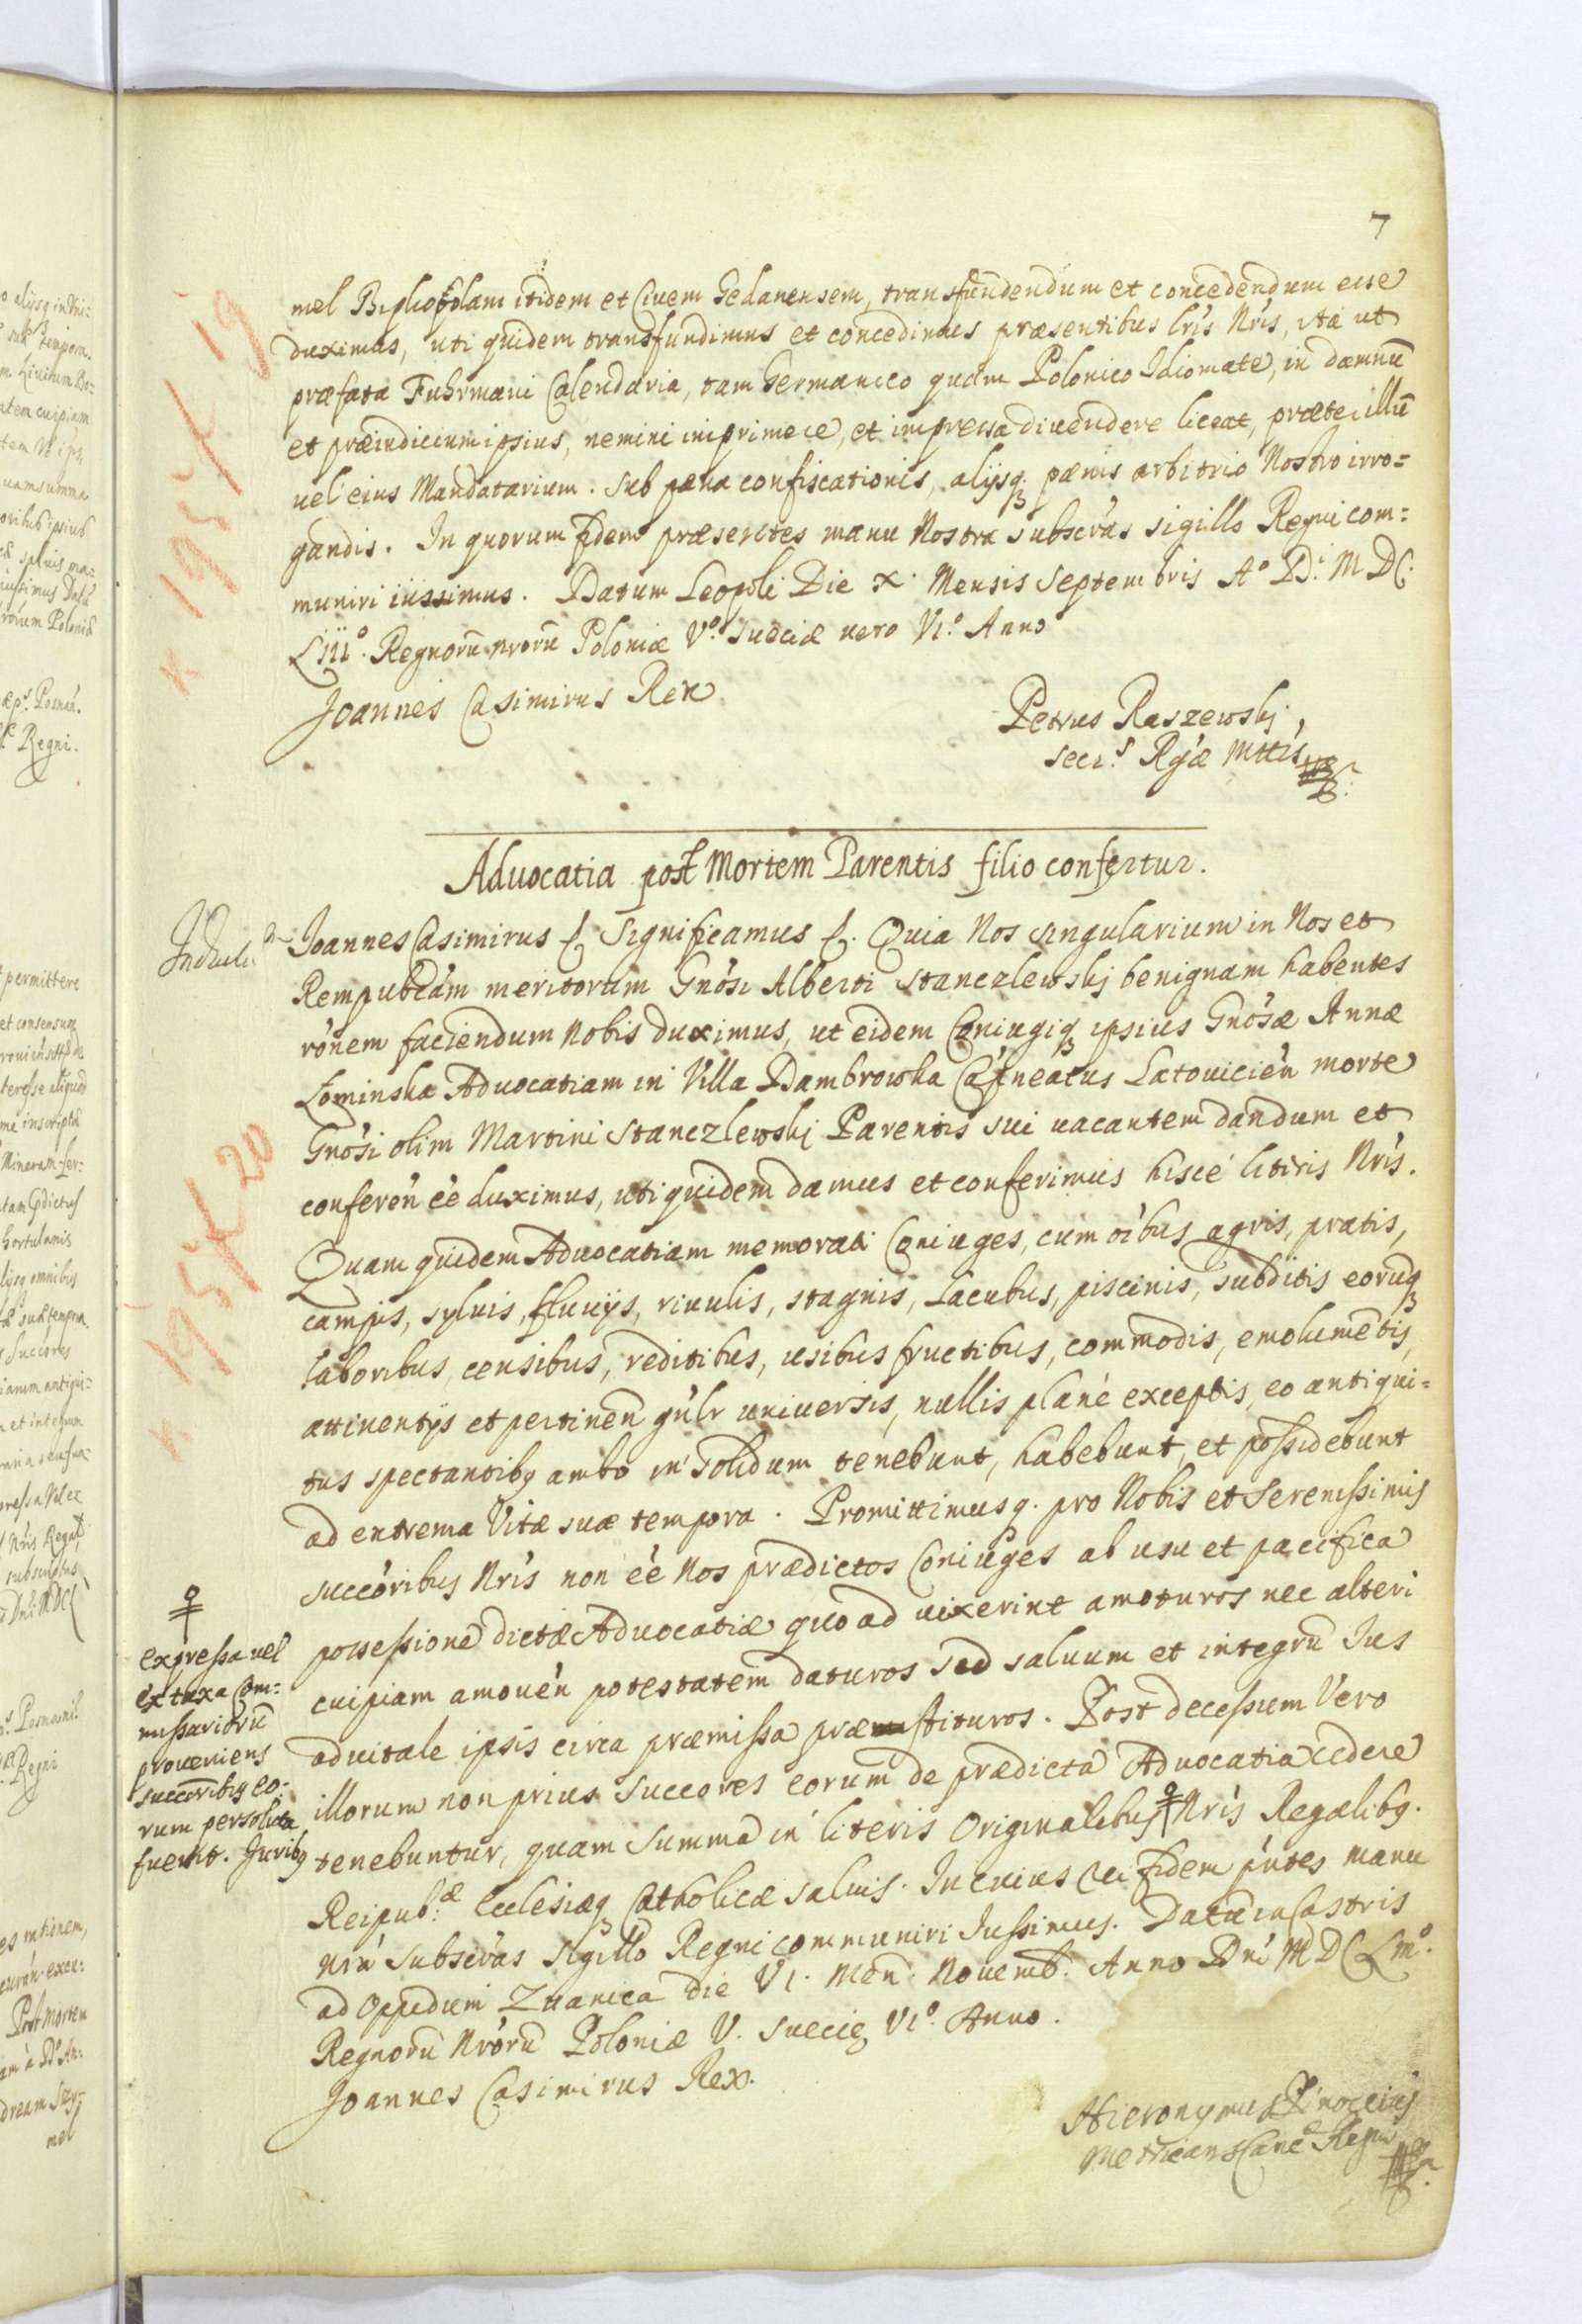 7
mel Bipliopolam itidem et Ciuem Gedanensem, transfundendum et concedendum esse
duximus, uti quidem transfundimus et concedimus præsentibus lris Nris, ita ut
præfata Fuhrmani Calendaria, tam Germanico quam Polonico Idiomate, in damnũ
et præiudicium ipsius, nemini imprimere, et impressa diuendere liceat, præter illũ
uel eius Mandatarium. sub pæna confiscationis, alijsq; pænis arbitrio Nostro irro=
gandis. In quorum fidem præsentes manu Nostra subscràs sigillo Regni com=
muniri iussimus. Datum Leopoli Die X. Mensis Septembris Aº D.i M DC.
LIIIº. Regnorũ nrorũ Poloniæ Vº. Sueciæ uero VIº. Anno
Joannes Casimirus Rex
Petrus Raszewskj
Secr.s Rgiæ Mttis
Aduocatia post Mortem Parentis filio confertur.
Joannes Casimirus &. Significamus &. Quia Nos singularium in Nos et
Rempubcàm meritorum Gnosi Alberti Stanczlewskj benignam habentes
rònem faciendum Nobis duximus, ut eidem Coniugiq; ipsius Gnosæ Annæ
Lominska Aduocatiam in Villa Dambrowka Capneatus Latouicieǹ morte
Gnosi olim Martini Stanczlewskj Parentis sui uacantem dandum et
confereǹ eè duximus, uti quidem damus et conferimus hisce litiris Nris.
Quam quidem Aduocatiam memorati Coniuges, cum oibus agris, pratis,
campis, syluis, fluuijs, riuulis, stagnis, Lacubus, piscinis, subditis eorũq;
laboribus, censibus, reditibus, usibus fructibus, commodis, emolumētis,
attinentijs et pertineǹ gnlr uniuersis, nullis planè exceptis, eo antiqui=
tus spectantibq ambo in solidum tenebunt, habebunt, et possidebunt
ad extrema Vitæ suæ tempora. Promittimusq. pro Nobis et Serenissimis
succòribus Nris non eè Nos prædictos Coniuges ab usu et pacifica
possessione dictæ Aduocatiæ quoad uixerint amoturos nec alteri
cuipiam amoueǹ potestatem daturos sed saluum et integrũ Ius
aduitale ipsis circa præmissa præstituros. Post decessum Vero
illorum non prius succores eorum de prædicta Aduocatia cedere
tenebuntur, quam summa in literis Originalibus Nris Regalibq.
expressa uel
ex taxa Com=
missariorũ
proueniens
succoribq eo:
rum persoluta
fuerit. Juribq
Reipub.æ Ecclesiæq; Catholicæ saluis. In cuius rei fidem pntes manu
nrà subscràs sigillo Regni communiri Iussimus. Datũ in Castris
ad Oppidum Zuanica die VI. Men. Nouemb. Anno Dni M D C Lmº.
Regnorũ Nrorũ Poloniæ V. Sueciæ VIº. Anno.
Joannes Casimirus Rex.
Hieronymus Pinoccius
Metrican Canc. Regni